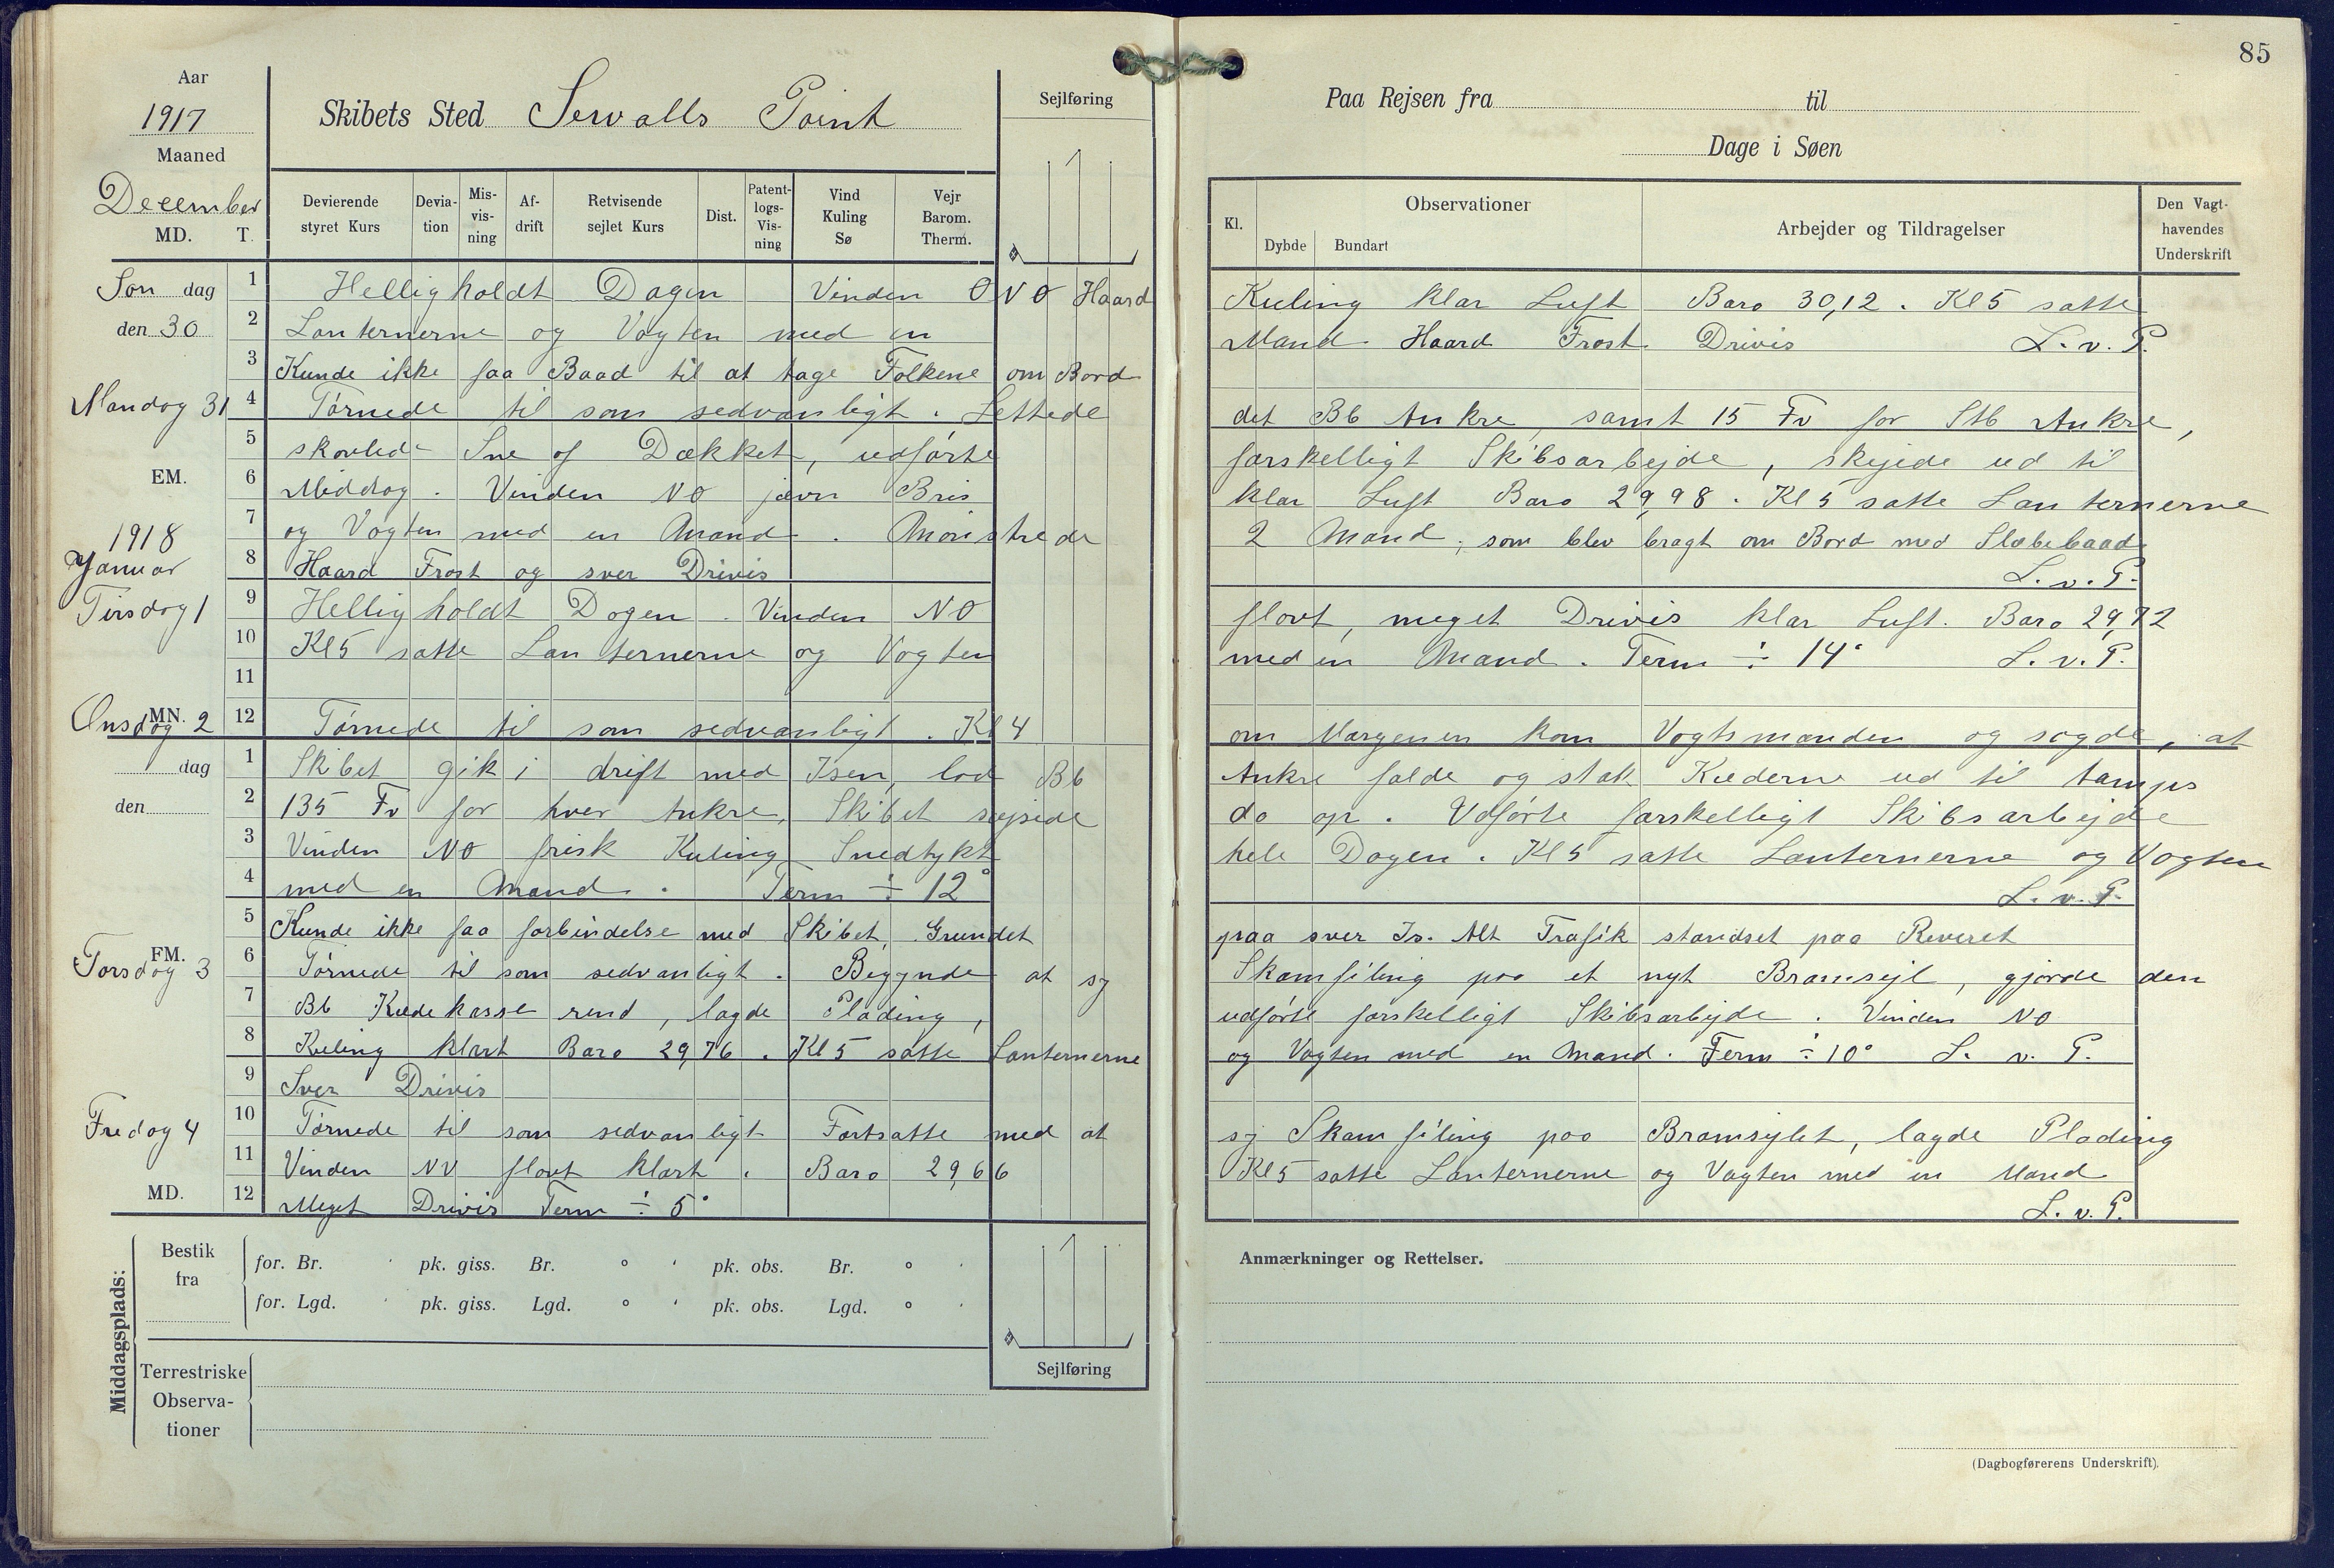 85
Aar
1917
Maaned
December
MD. T.
Skibets Sted Sewalls Point
Sejlføring
Paa Rejsen fra til
Dage i Søen
Devierende styret Kurs
Devia-tion
Mis-vis-ning
Af-drift
Retvisende sejlet Kurs
Dist.
Patent-logs-Vis-ning
Vind Kuling Sø
Vejr Barom. Therm.
Kl.
Observationer
Dybde Bundart
Arbejder og Tildragelser
Den Vagt-havendes Underskrift
Søn dag
den 30
1 Helligholdt Dagen Vinden ONO Haard
Kuling klar Luft Baro 30,12 . Kl 5 satte
2 Lanternerne og Vagten med en
Mand. Haard Frost. Drivis L. v. P.
3 Kunde ikke faa Baad til at tage Folkene om Bord
Mandag 31
4 Tørnede til som sedvanligt . Lettede
det Bb Ankre, samt 15 Fv for Stb Ankre,
5 skovlede Sne af Dækket, udførte
forskelligt Skibsarbejde, skejede ud til
EM.
6 Middag . Vinden NO jævn Bris
klar Luft Baro 29,98 . Kl 5 satte Lanternerne
7 og Vagten med en Mand . Mønstrede
2 Mand, som blev bragt om Bord med Slæbebaad
1918
Januar
8 Haard Frost og svær Drivis
L. v. P.
Tirsdag 1
9 Helligholdt Dagen . Vinden NO
flovt, meget Drivis klar Luft. Baro 29,72
10 Kl 5 satte Lanternerne og Vagten
med en Mand . Term ÷ 14° L. v. P.
11
Onsdag 2
MN.
12 Tørnede til som sedvanligt . Kl 4
om Morgenen kom Vagtsmanden og sagde, at
dag
den
1 Skibet gik i drift med Isen, lod Bb
Ankre falde og stak Kæderne ud til tamps
2 135 Fv for hver Ankre, Skibet svejede
da op . Udførte forskelligt Skibsarbejde
3 Vinden NO frisk Kuling Snedtykt
hele Dagen . Kl 5 satte Lanternerne og Vagten
4 med en Mand . Term ÷ 12°
L. v. P.
5 Kunde ikke faa forbindelse med Skibet, Grundet
paa svær Is. Alt Trafik standset paa Reveret
FM.
Torsdag 3
6 Tørnede til som sedvanligt . Begynde at sy
Skamfiling paa et nyt Bramsejl, gjorde den
7 Bb Kædekasse rend, lagde Plading,
udførte forskelligt Skibsarbejde . Vinden NO
8 Kuling klart Baro 29,76 . Kl 5 satte Lanternerne
og Vagten med en Mand . Term ÷ 10° L. v. P.
9 Svær Drivis
Fredag 4
10 Tørnede til som sedvanligt Fortsatte med at
sy Skamfiling paa Bramsejlet, lagde Plading
11 Vinden NV flovt klart . Baro 29,66
Kl 5 satte Lanternerne og Vagten med en Mand
MD.
12 Meget Drivis Term ÷ 5°
L. v. P.
Middagsplads:
Bestik fra
for. Br. ' pk. giss. Br. ° ' pk. obs. Br. ° '
for. Lgd. ' pk. giss. Lgd. ° ' pk. obs. Lgd. ° '
Terrestriske Observa-tioner
Sejlføring
Anmærkninger og Rettelser.
(Dagbogførerens Underskrift).